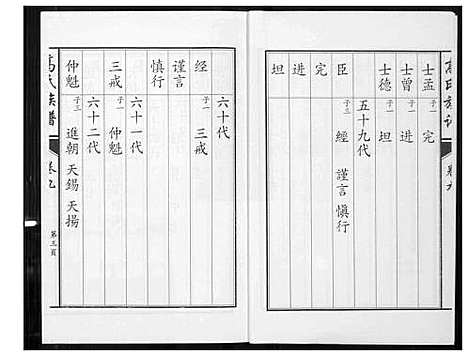 高氏族譜
卷九
士孟 子一 完
士曾 子一 进
士德 子一 坦
五十九代
臣 子三 經 謹言 慎行
完
进
坦
六十代
经 子一 三戒
谨言
慎行
六十一代
三戒 子一 仲魁
六十二代
仲魁 子三 進朝 天錫 天揚
高氏族譜
卷九
第三頁